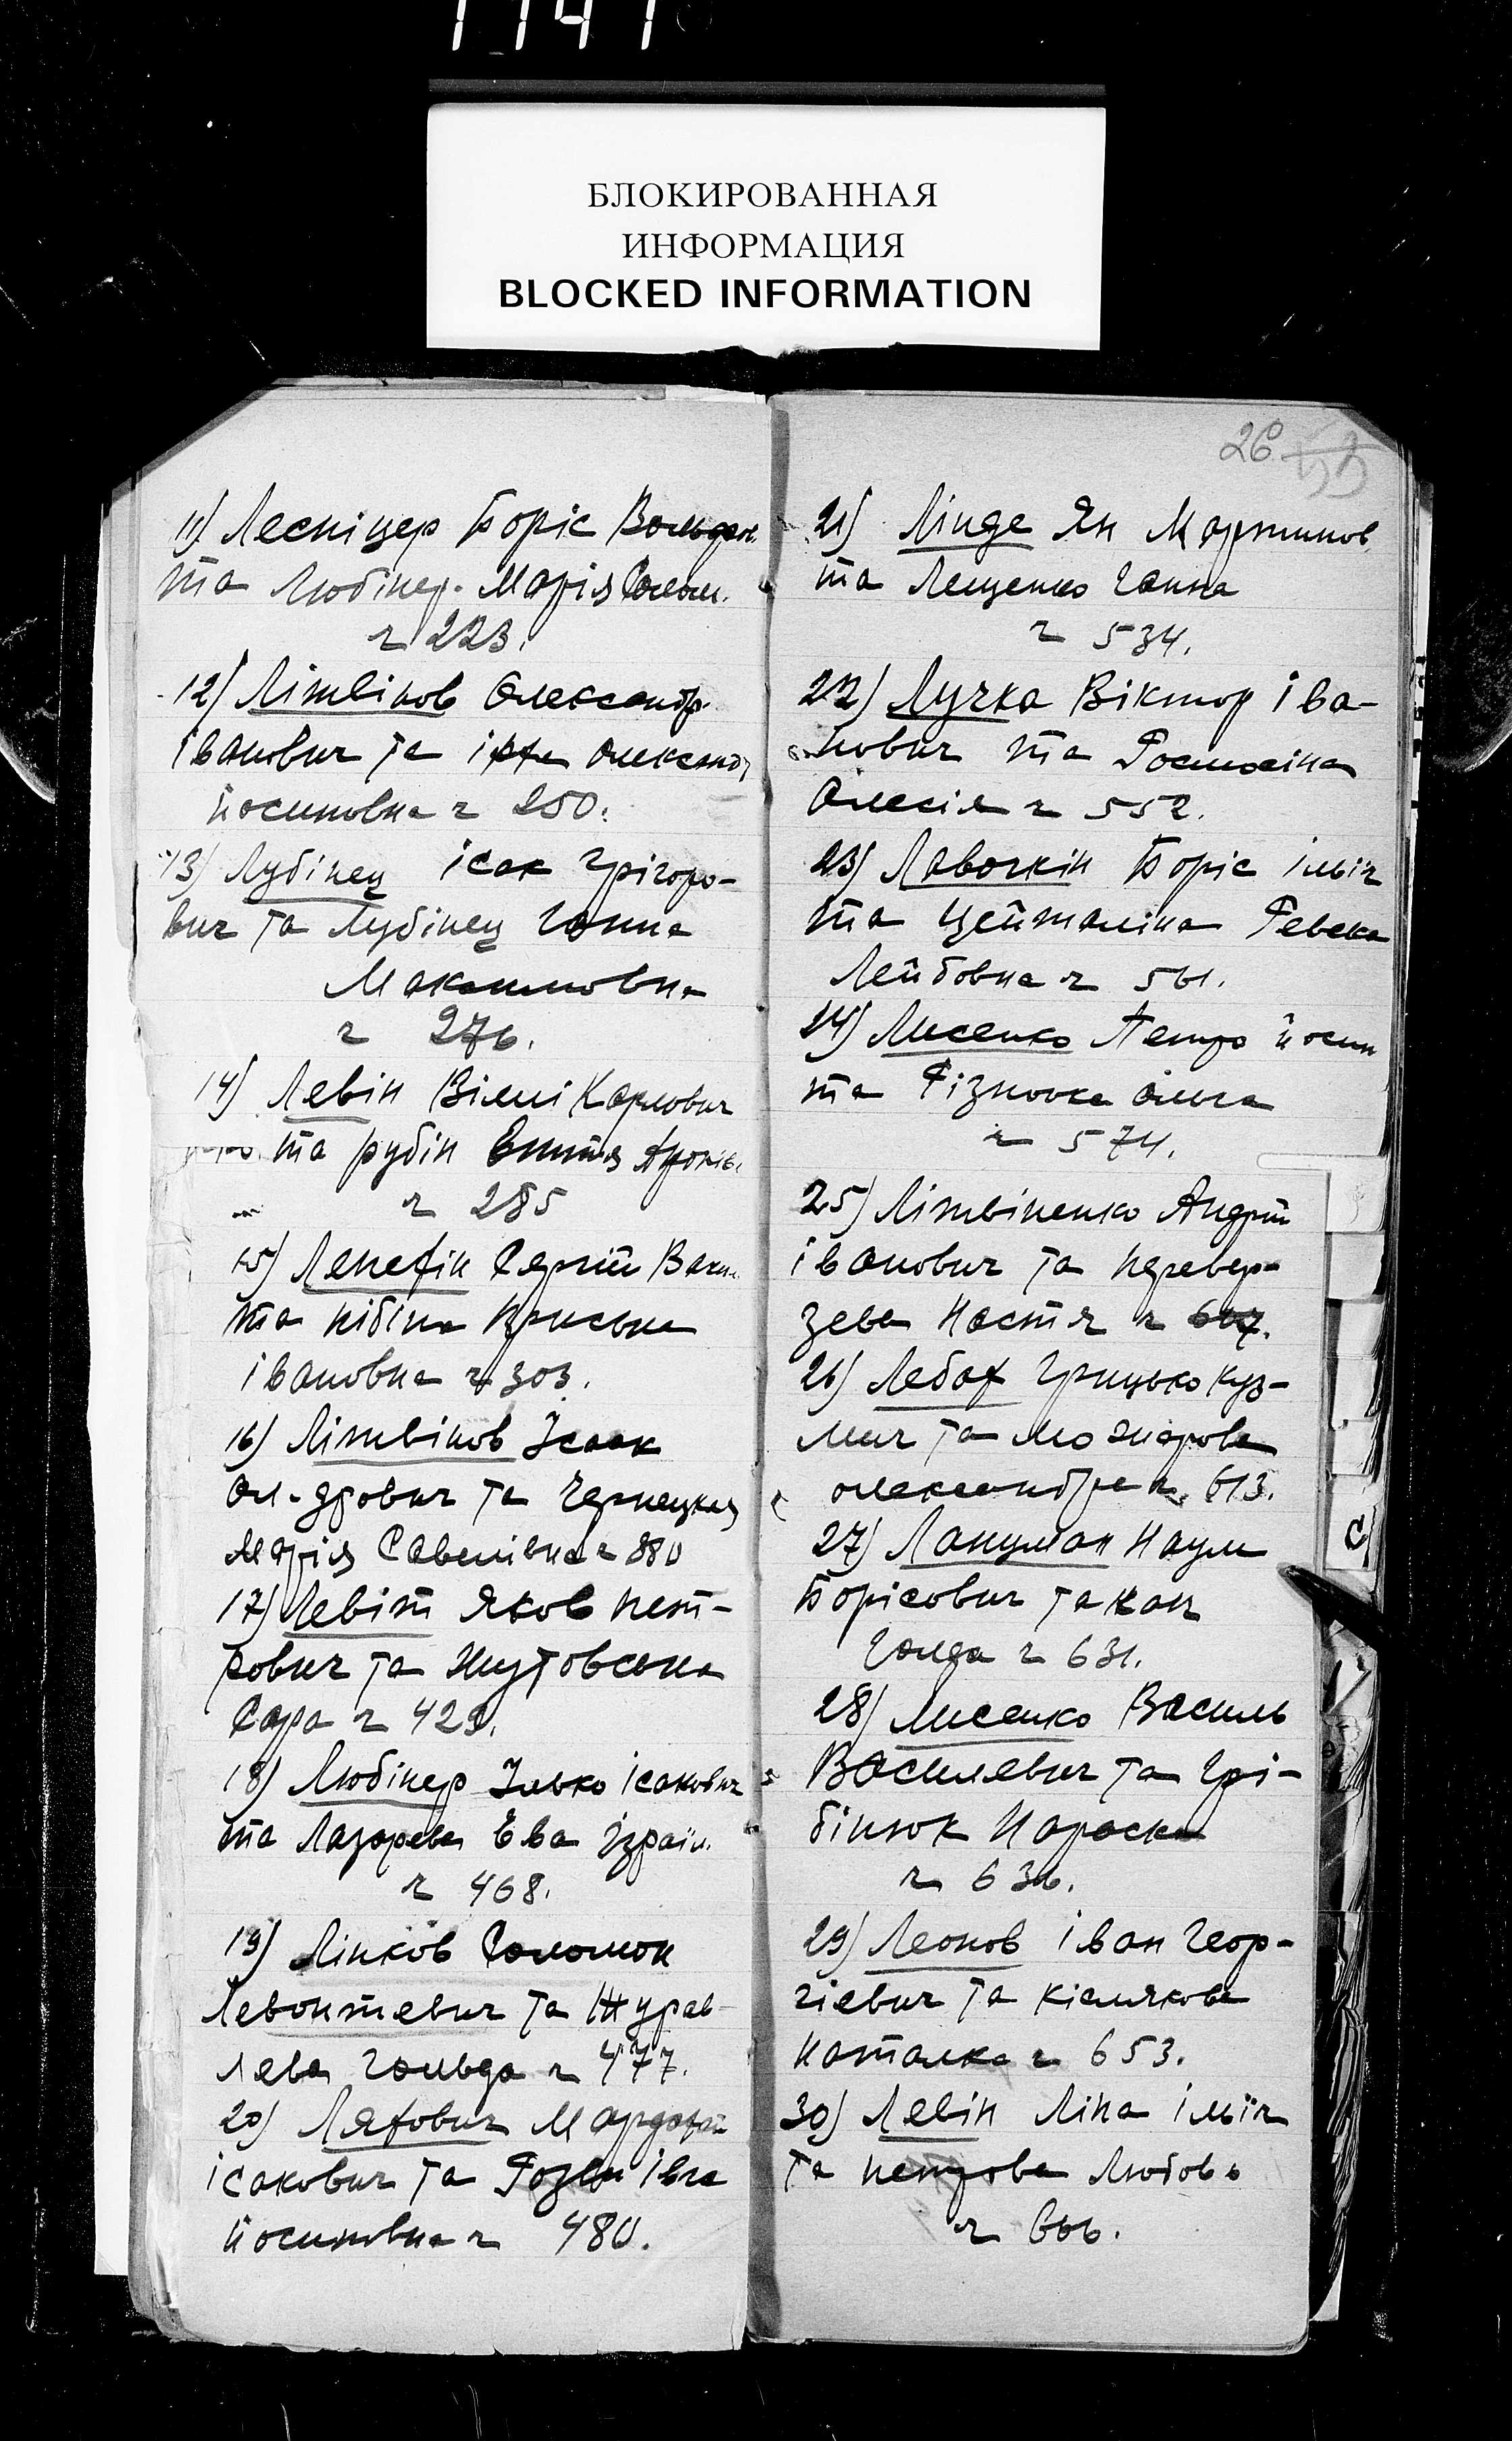 1141
БЛОКИРОВАННАЯ
ИНФОРМАЦИЯ
BLOCKED INFORMATION
26
11) Лесніцер Боріс
та Любінер. Марія Солом.
ч 223.
12) Літвінов Олександр.
Івановіч та
Йосиповна ч 250.
13) Лубінец Ісак Грігоро-
вич та Лубінец Ганна
Максимовна
ч 276.
14) Левін Карлович
та рубін
ч 285
15) Сергій
та
Івановна ч 303.
16) Літвінов Ісаак
Ол-дрович та Чернецкая
Марія Савелівна ч 380
17) Левіт Яков Пет-
рович та Жутовська
Сара ч 429.
18) Любінер Ілько Ісакович
та Лазарева Ева Ізраїл.
ч 468.
19) Лінков Соломон
Левонтевич та Журав-
лева Гольда ч 477.
20) Ляхович Мордохай
Ісакович та Івга
Йосиповна ч 480.
21) Лінде Ян Мартинов
та Лещенко Ганна
ч 534.
22) Лучка Віктор Іва-
нович та
Олесія ч 552.
23) Лавочкін Боріс Ільїч
та Цейтліна Ревека
Лейбовна ч 561.
24) Лисенко Петро Йосип
та Ольга
ч 574.
25) Літвіненко Андрій
Іванович та Перевер-
зева Настя ч 607.
26) Лебах Грицько Куз-
мич та Можарова
Олександра ч. 613.
27) Лакцман Наум
Борісович та Кац
Голда ч 631.
28) Лисенко Василь
Василевич та Грі-
бінюк Параска
ч 636.
29) Леонов Іван Геор-
гієвич та Кіслякова
Наталка ч 653.
30) Левін Ліпа Ільїч
та Петрова Любовь
ч 666.